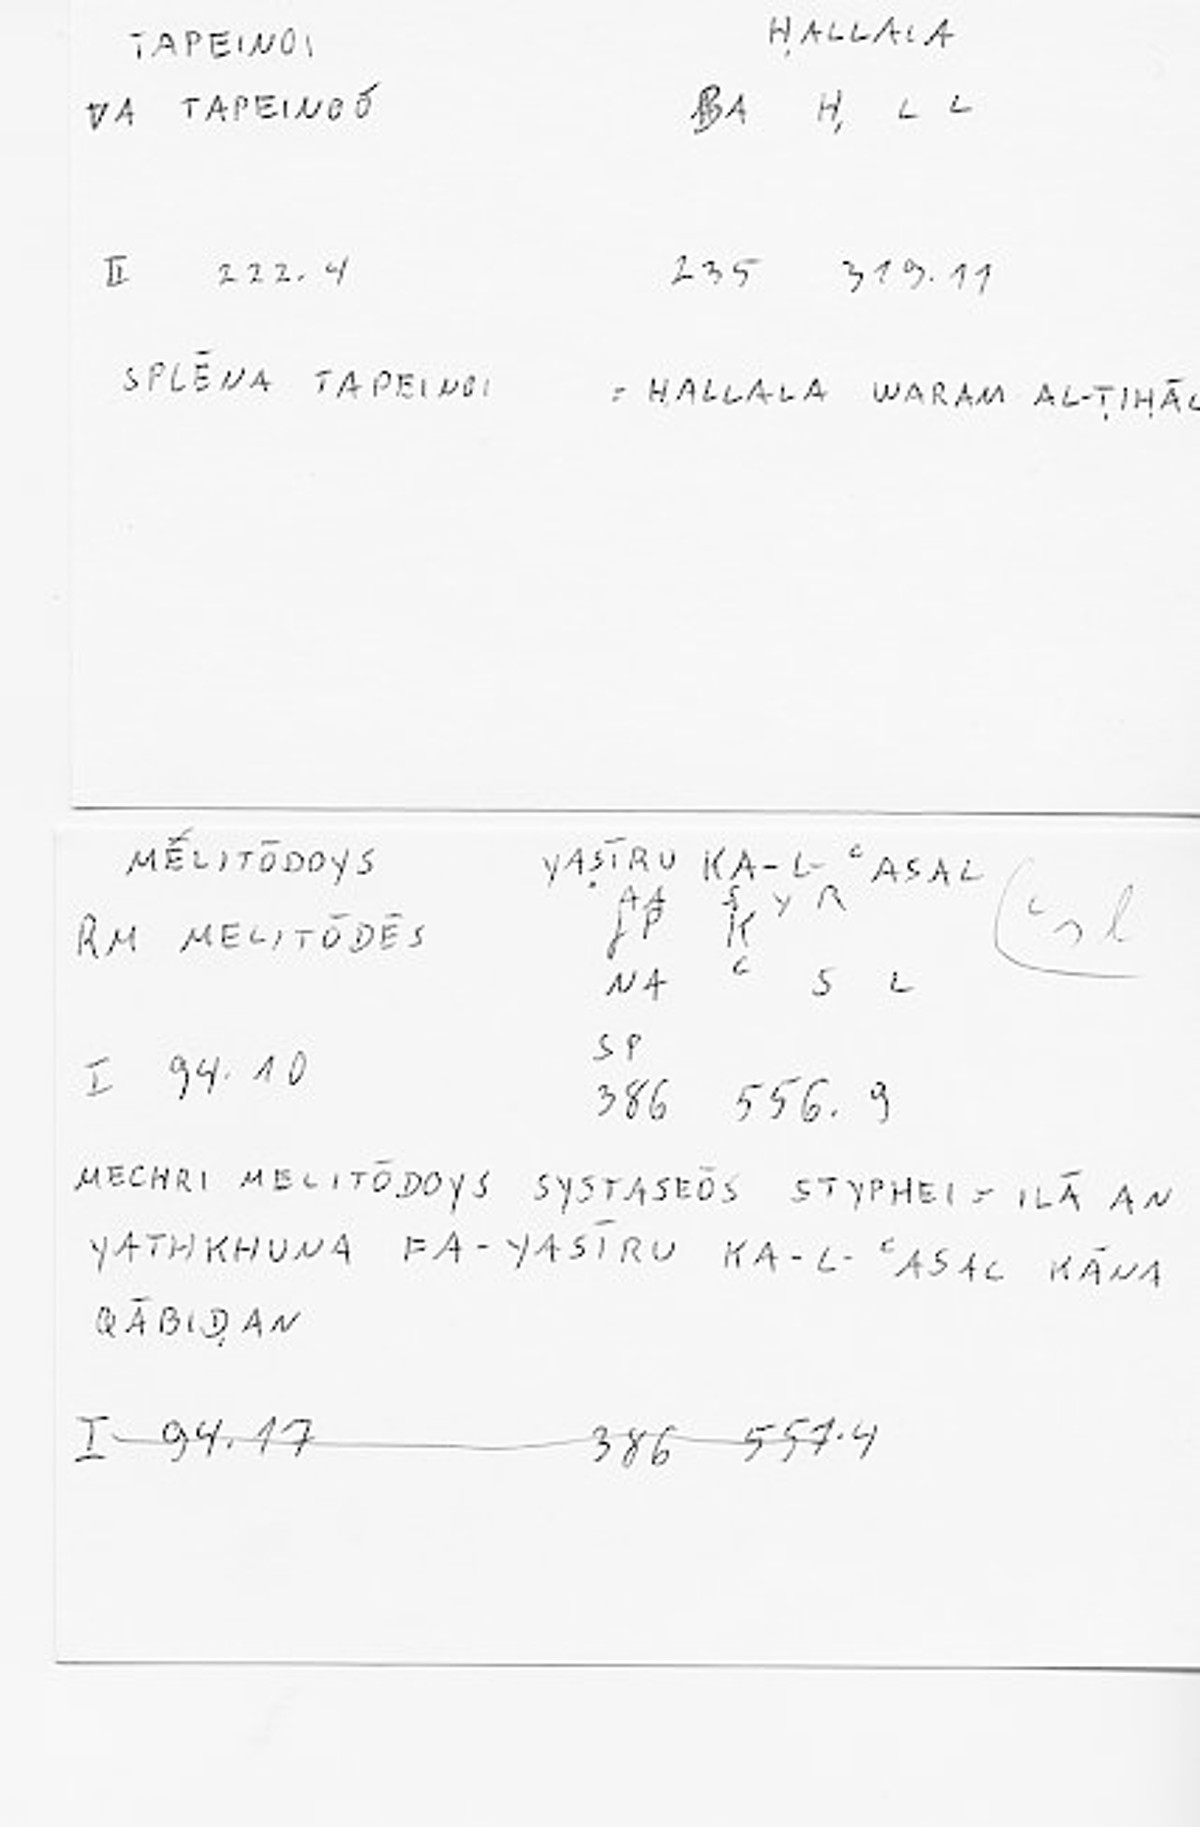 TAPEINOI ḤALLALA
VA TAPEINOÓ BA Ḥ L L
II 222.4 235 319.11
SPLĒNA TAPEINOI = ḤALLALA WARAM AL-ṬIḤĀL
MÉLITŌDOYS YAṢĪRU KA-L-ʿASAL
AA Ṣ Y R
RM MELITŌDĒS JP K
NA ʿ S L
SP
I 94.10 386 556.9
MECHRI MELITŌDOYS SYSTASEŌS STYPHEI = ILĀ AN
YATHKHUNA FA-YASĪRU KA-L-ʿASAL KĀNA
QĀBIḌAN
I 94.17 386 557.4